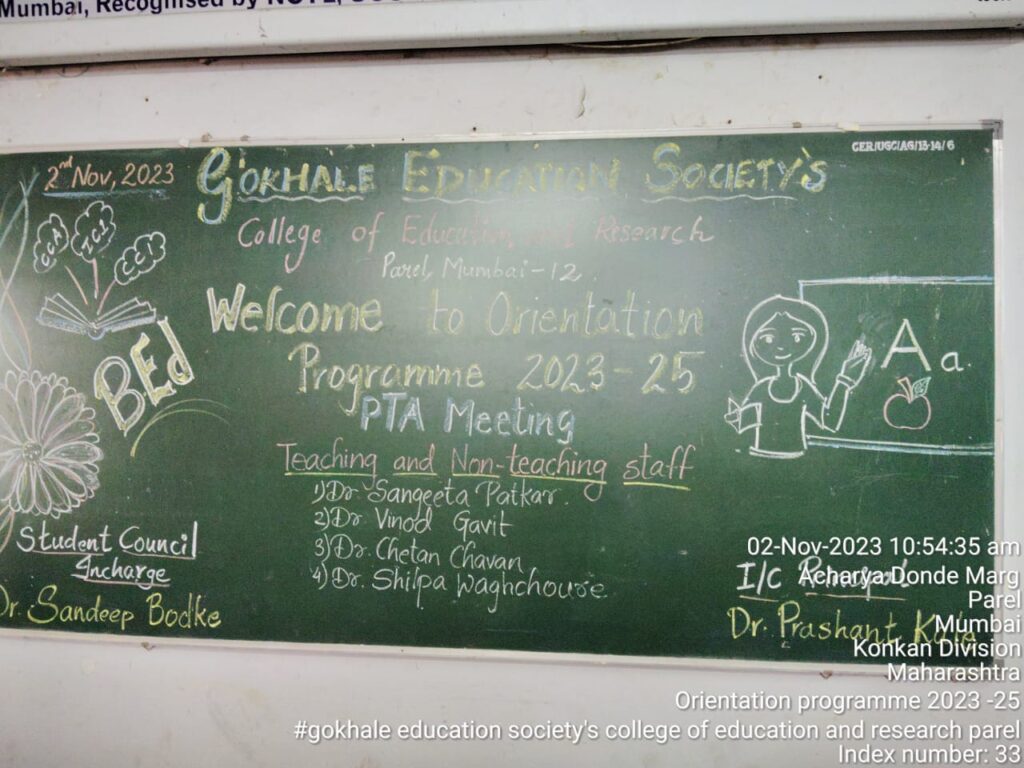 Mumbai, Recognised by
2nd Nov, 2023
GOKHALE EDUCATION SOCIETY'S
CER/UGC/AG/13-14/6
College of Education and Research
Parel, Mumbai-12
CCA
ICI
CCI
Welcome to Orientation
Programme 2023-25
BEd
PTA Meeting
A a
Teaching and Non-teaching staff
1) Dr. Sangeeta Patkar.
2) Dr. Vinod Gavit
3) Dr. Chetan Chavan
4) Dr. Shilpa Waghchoure.
Student Council
Incharge
Dr. Sandeep Bodke
I/C Principal
Dr. Prashant
02-Nov-2023 10:54:35 am
Acharya Donde Marg
Parel
Mumbai
Konkan Division
Maharashtra
Orientation programme 2023 -25
#gokhale education society's college of education and research parel
Index number: 33